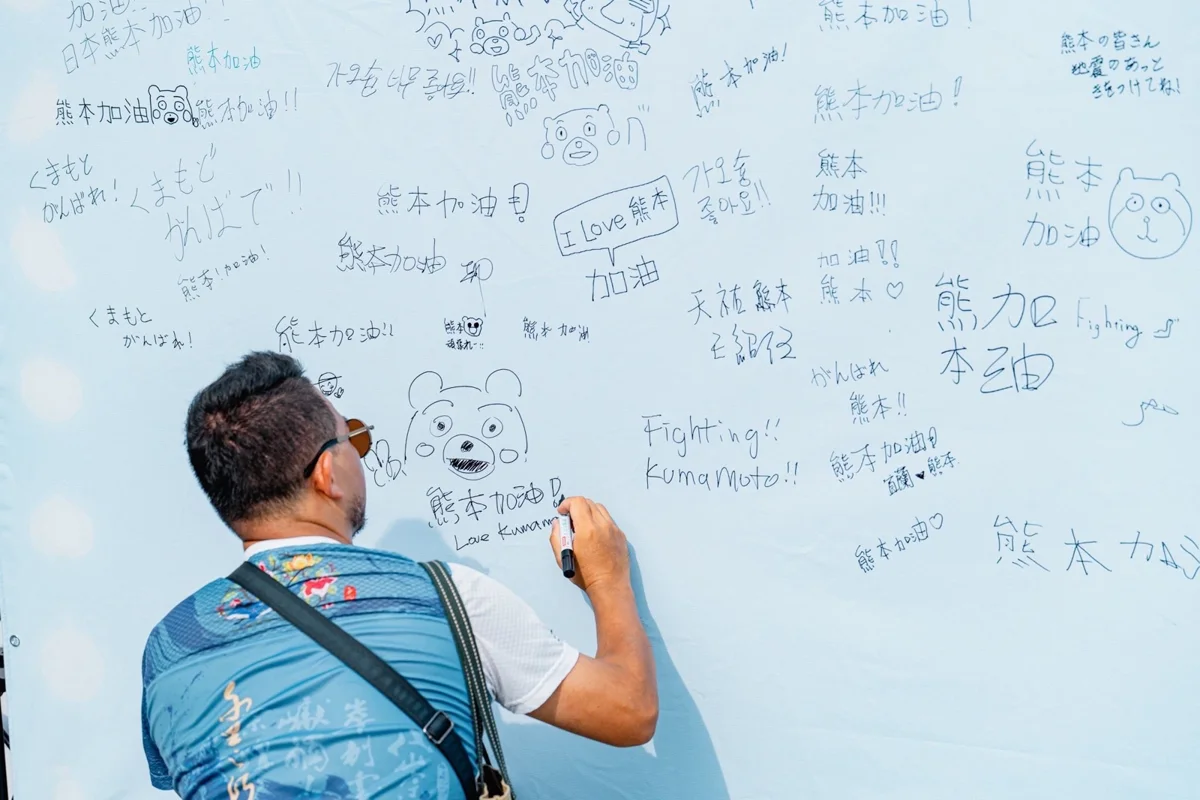 加油!
日本熊本加油!!
熊本加油
熊本加油
熊本加油!!
가오슝 너무 좋아요!!
熊本加油
熊本加油!
熊本加油!
熊本加油!
熊本の皆さん
地震のあっと
くまもと
がんばれ!
くまもど
がんばで!!
熊本加油!
I Love 熊本
加油
가오슝
좋아요!!
熊本
加油!!!
熊本
加油
熊本!加油!
熊本加油
加油!!
熊本♡
天祐熊本
くまもと
がんばれ!
熊本加油!!
熊本
熊本加油
熊加
本油
Fighting
がんばれ
熊本!!
Fighting!!
Kumamoto!!
熊本加油!
宜蘭♥熊本
熊本加油!
Love Kumam
熊本加油♡
熊本加油